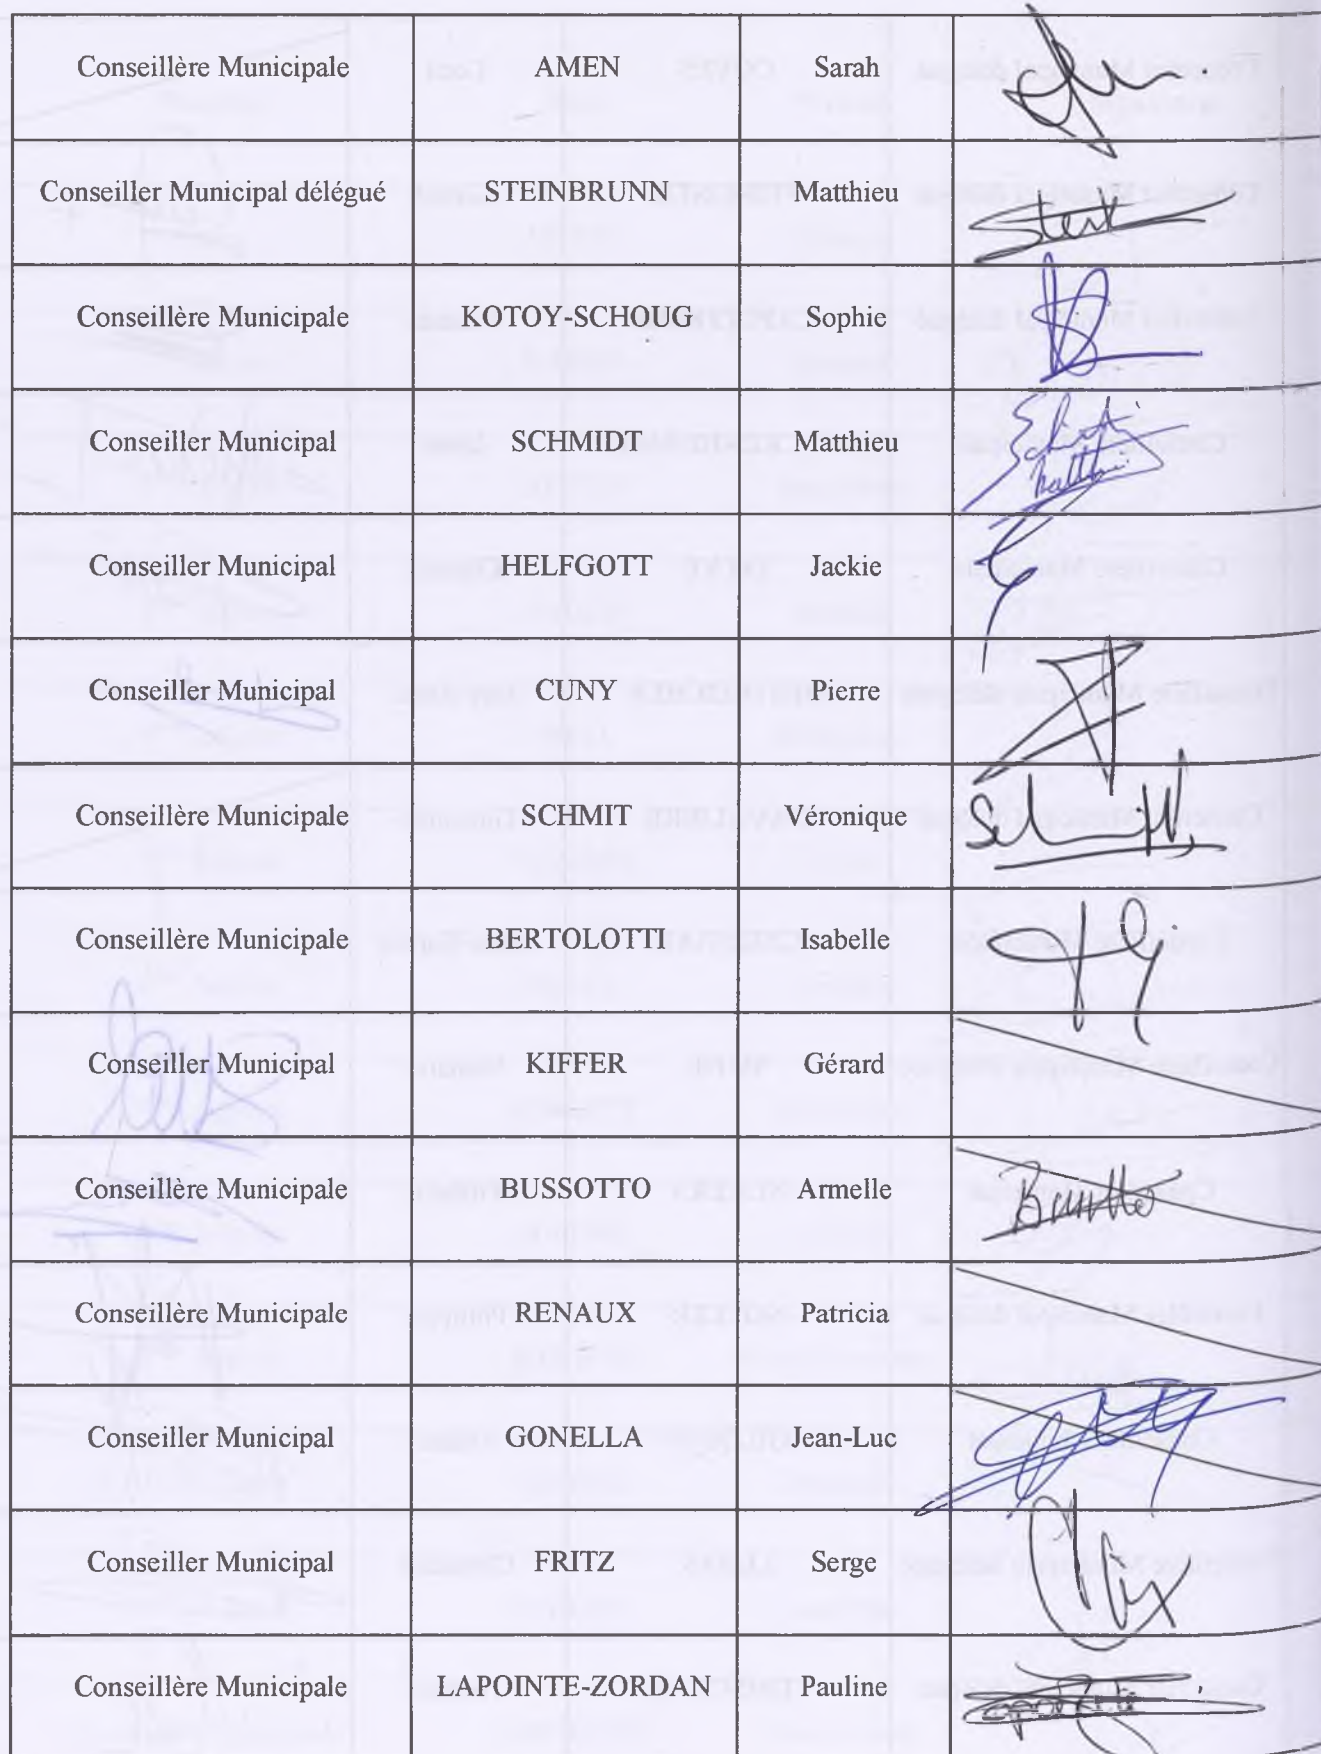 Conseillère Municipale AMEN Sarah
Conseiller Municipal délégué STEINBRUNN Matthieu
Conseillère Municipale KOTOY-SCHOUG Sophie
Conseiller Municipal SCHMIDT Matthieu
Conseiller Municipal HELFGOTT Jackie
Conseiller Municipal CUNY Pierre
Conseillère Municipale SCHMIT Véronique
Conseillère Municipale BERTOLOTTI Isabelle
Conseiller Municipal KIFFER Gérard
Conseillère Municipale BUSSOTTO Armelle
Conseillère Municipale RENAUX Patricia
Conseiller Municipal GONELLA Jean-Luc
Conseiller Municipal FRITZ Serge
Conseillère Municipale LAPOINTE-ZORDAN Pauline